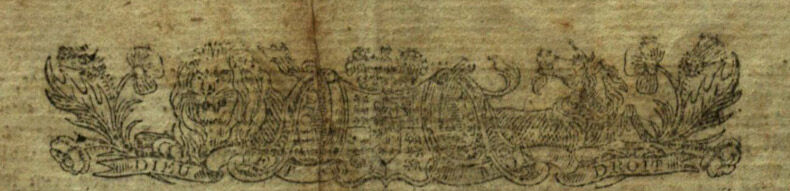 DIEU DROIT